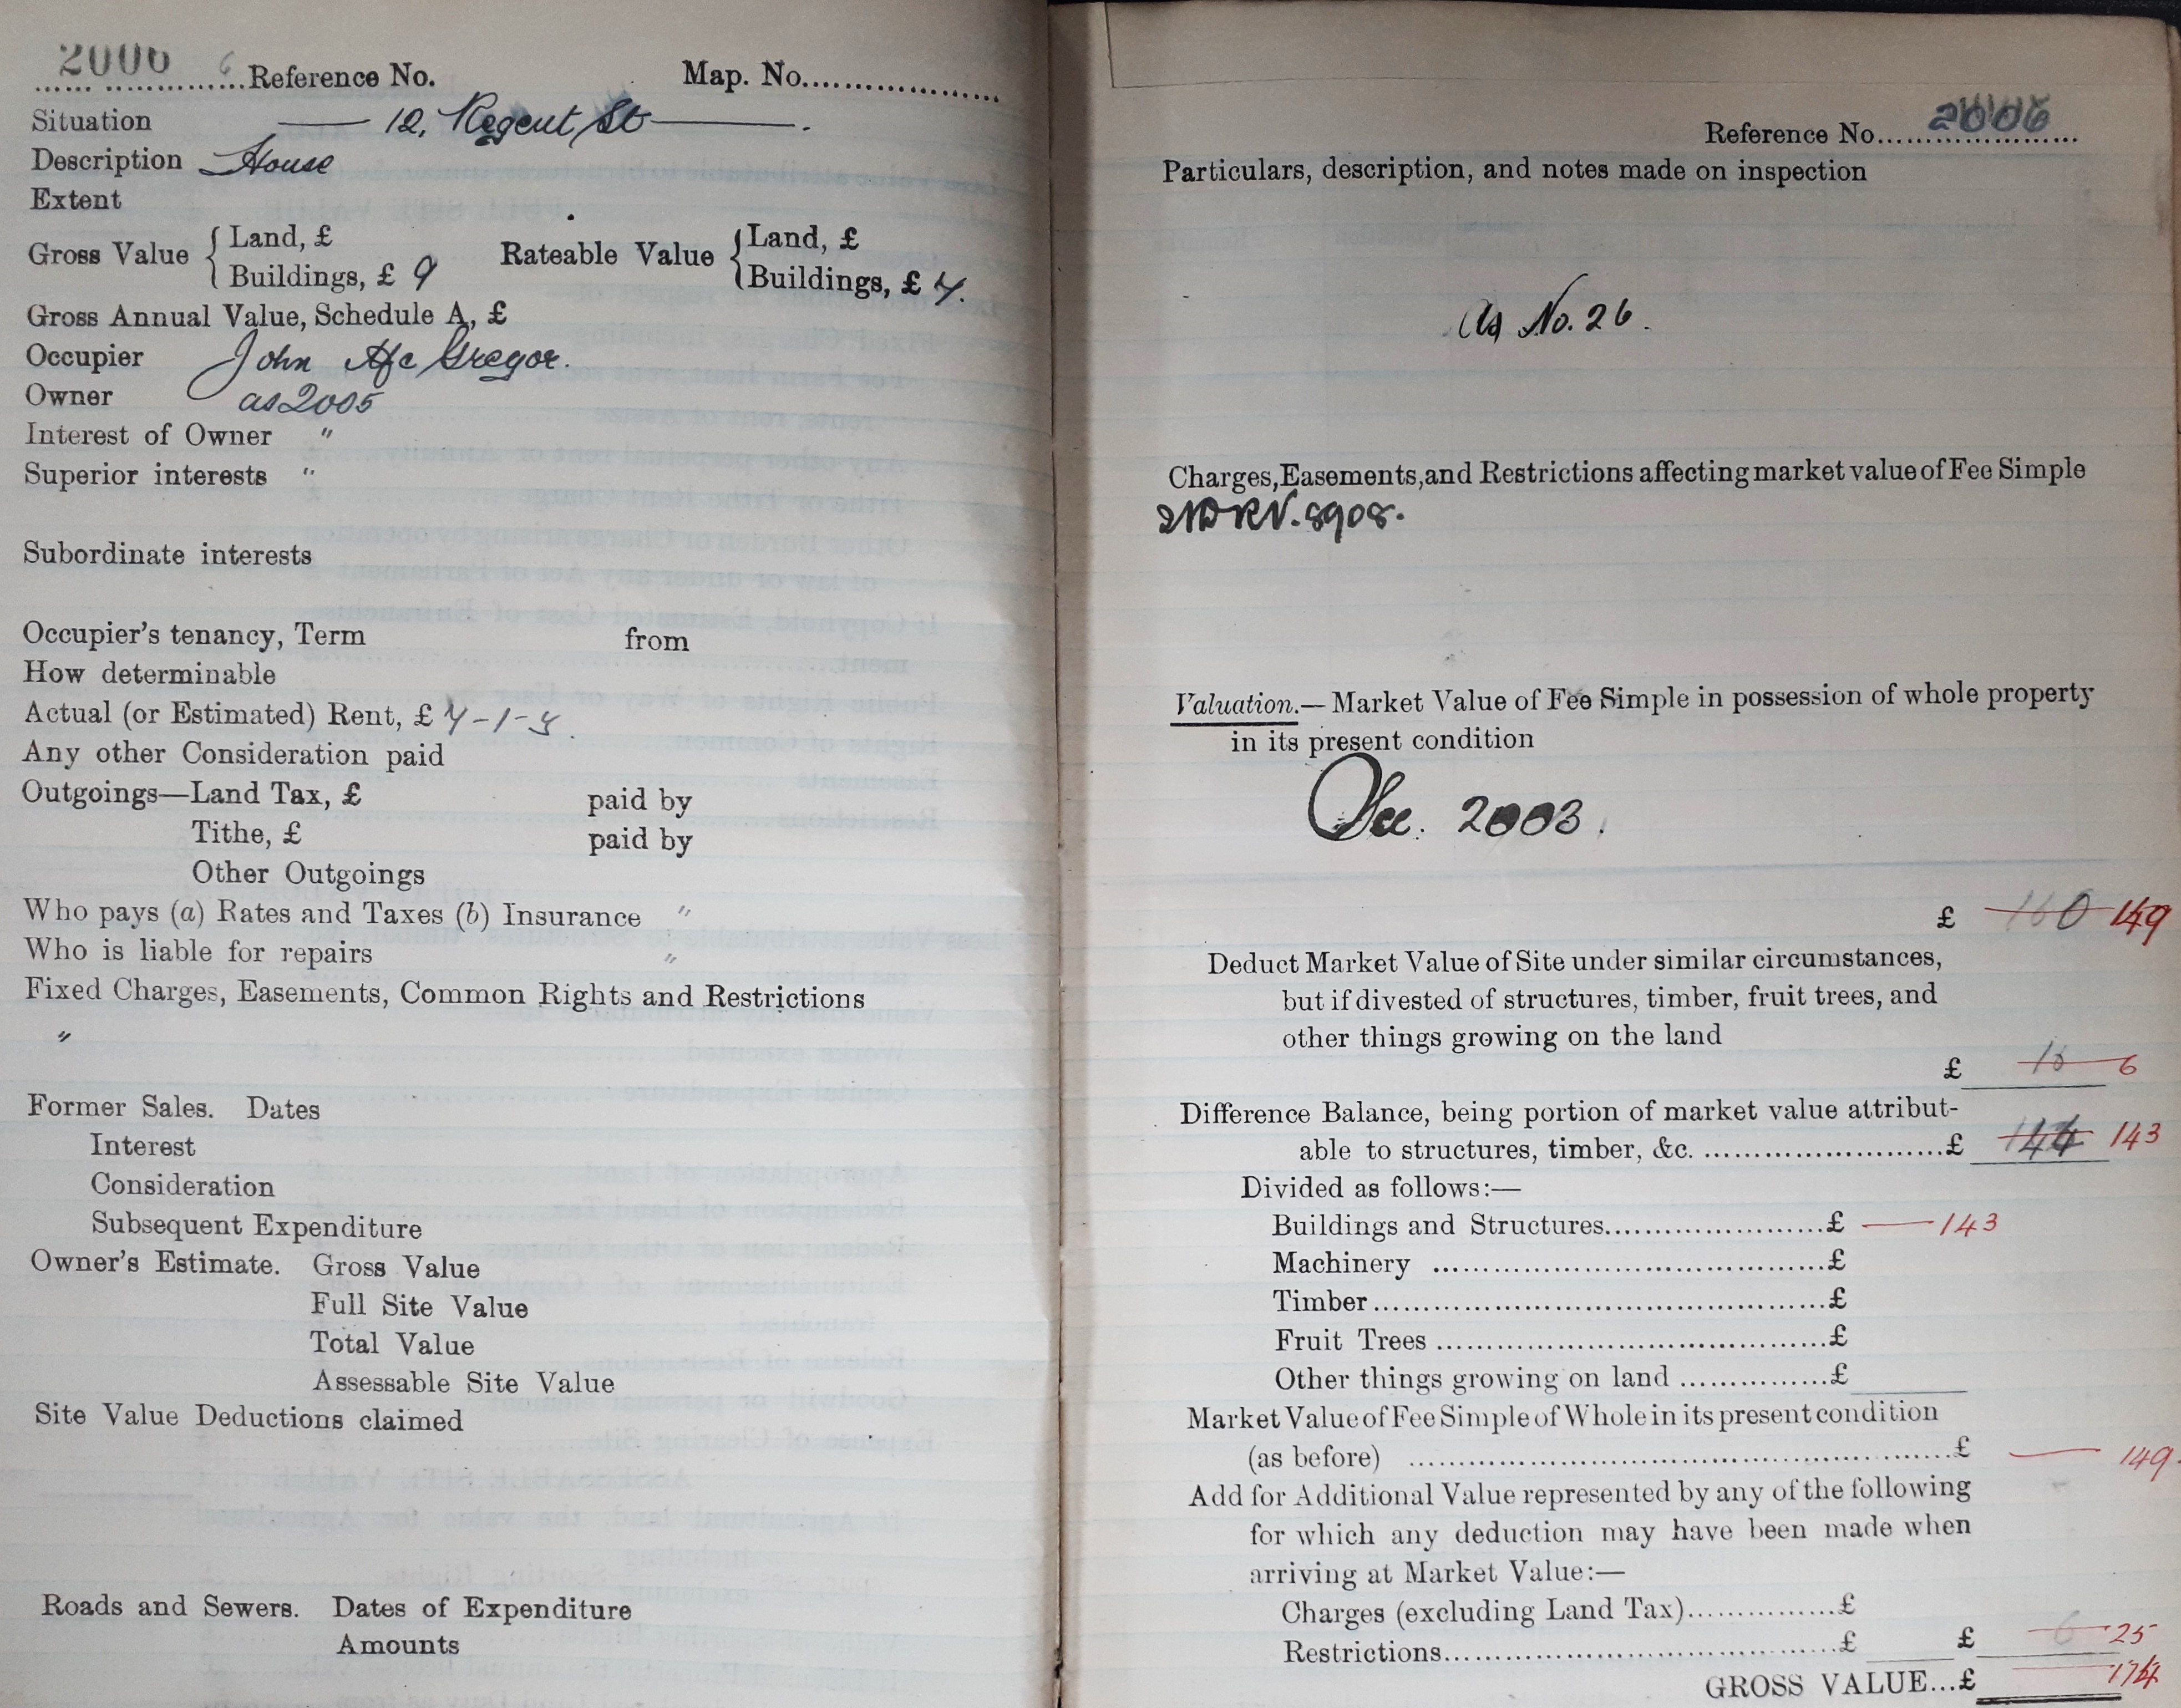 2006 6 Reference No. Map. No.
Situation — 12, Regent St — .
Description House
Extent
Gross Value { Land, £ Rateable Value { Land, £
Buildings, £ 9 Buildings, £ 7.
Gross Annual Value, Schedule A, £
Occupier John McGregor.
Owner as 2005
Interest of Owner "
Superior interests "
Subordinate interests
Occupier's tenancy, Term from
How determinable
Actual (or Estimated) Rent, £
Any other Consideration paid
Outgoings—Land Tax, £ paid by
Tithe, £ paid by
Other Outgoings
Who pays (a) Rates and Taxes (b) Insurance "
Who is liable for repairs "
Fixed Charges, Easements, Common Rights and Restrictions
"
Former Sales. Dates
Interest
Consideration
Subsequent Expenditure
Owner's Estimate. Gross Value
Full Site Value
Total Value
Assessable Site Value
Site Value Deductions claimed
Roads and Sewers. Dates of Expenditure
Amounts
Reference No. 2006
Particulars, description, and notes made on inspection
As No. 26.
Charges, Easements, and Restrictions affecting market value of Fee Simple
8908.
Valuation.— Market Value of Fee Simple in possession of whole property
in its present condition
See. 2003.
£ 160 149
Deduct Market Value of Site under similar circumstances,
but if divested of structures, timber, fruit trees, and
other things growing on the land
£ 6
Difference Balance, being portion of market value attribut-
able to structures, timber, &c. £ 144 143
Divided as follows:—
Buildings and Structures £ — 143
Machinery £
Timber £
Fruit Trees £
Other things growing on land £
Market Value of Fee Simple of Whole in its present condition
(as before) £ — 149.
Add for Additional Value represented by any of the following
for which any deduction may have been made when
arriving at Market Value:—
Charges (excluding Land Tax) £
Restrictions £ £ 6 25
GROSS VALUE...£ 174